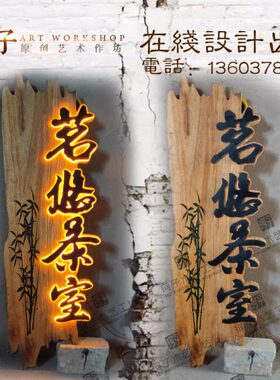 子 ART WORKSHOP
原创艺术作坊
在綫設計出
電話：1360378
茗悠茶室
茗悠茶室